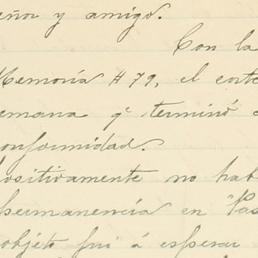 eñor y amigo.
Con la
Memoria #79, el corte
semana qe terminó
conformidad.
Positivamente no hab
permanencia en "Pas
objeto fui á esperar